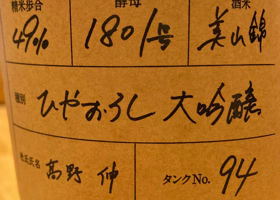 精米歩合 酵母 酒米
49% 1801号 美山錦
種別 ひやおろし 大吟醸
杜氏氏名 高野 伸 タンクNo. 94